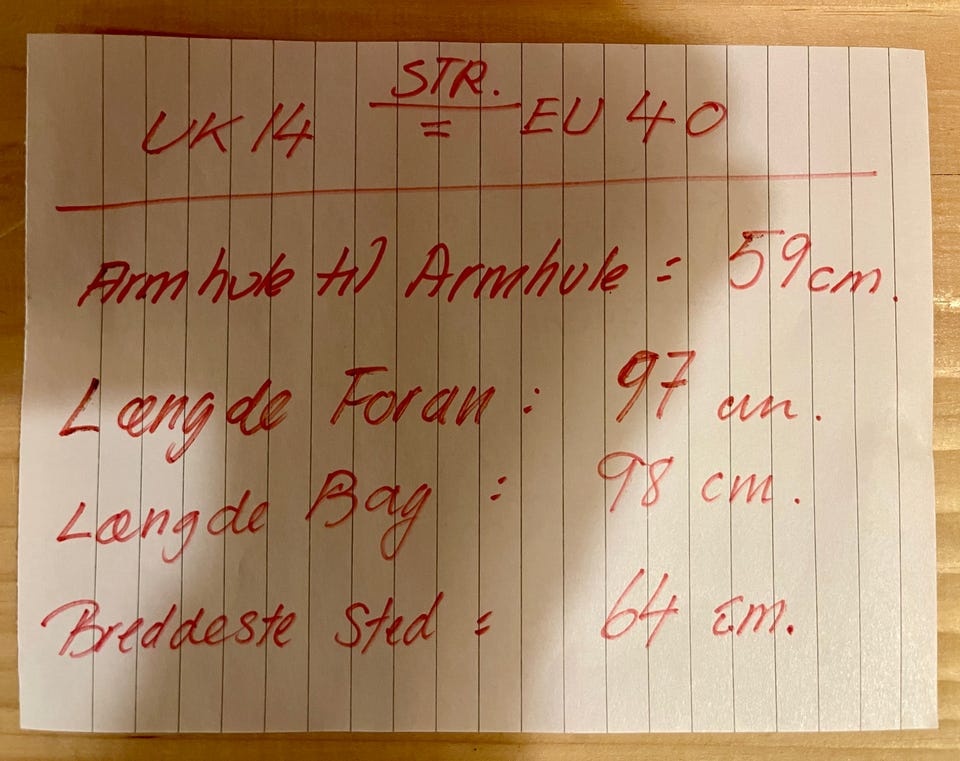 STR.
UK 14 = EU 40
Armhule til Armhule = 59 cm.
Længde Foran : 97 cm.
Længde Bag : 98 cm.
Breddeste Sted = 64 cm.